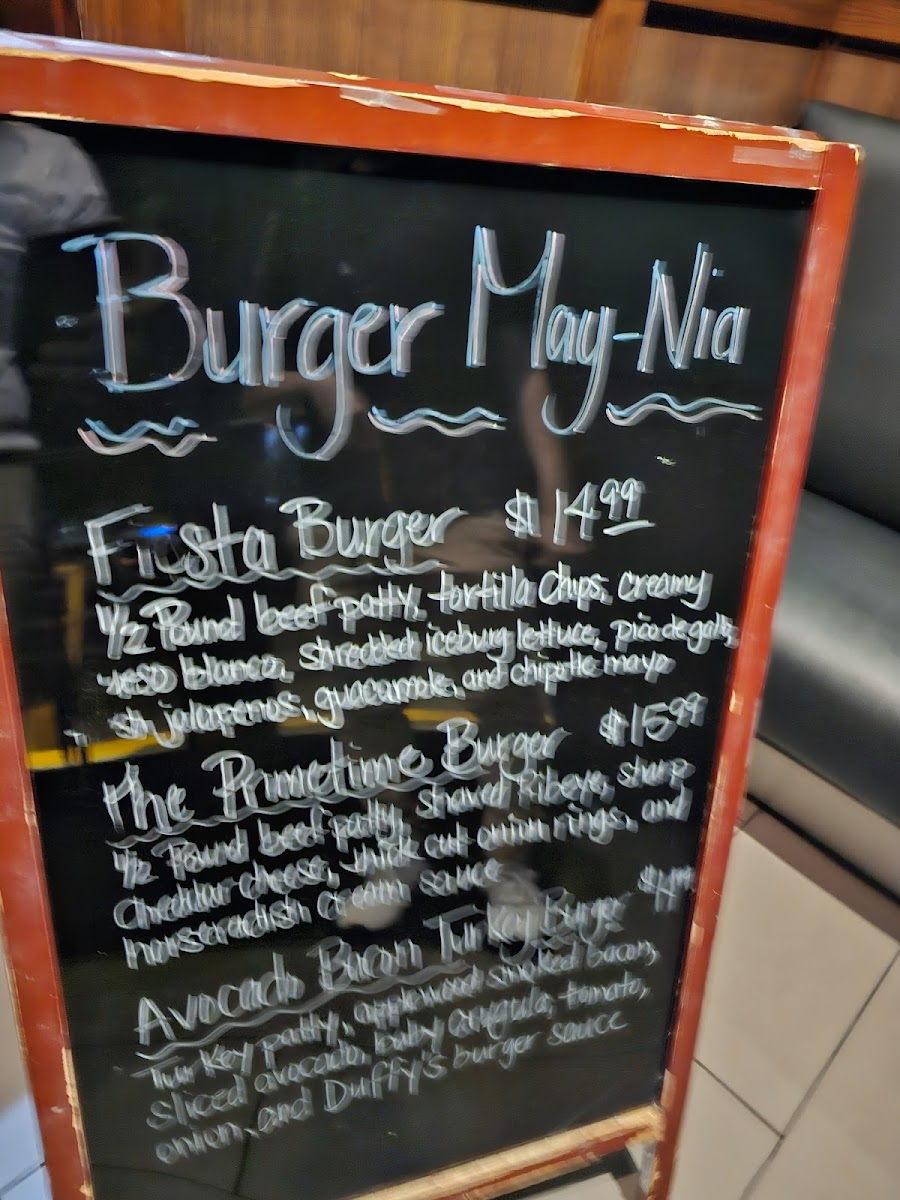 Burger May-Nia
Fiesta Burger $14.99
1/2 Pound beef patty, tortilla chips, creamy
queso blanco, shredded iceburg lettuce, pico de gallo,
jalapenos, guacamole, and chipotle mayo
The Primetime Burger $15.99
1/2 Pound beef patty, shaved Ribeye, sharp
cheddar cheese, thick cut onion rings, and
horseradish cream sauce
Avocado Bacon Turkey Burger
Turkey patty, applewood smoked bacon,
sliced avocado, baby arugula, tomato,
onion, and Duffy's burger sauce